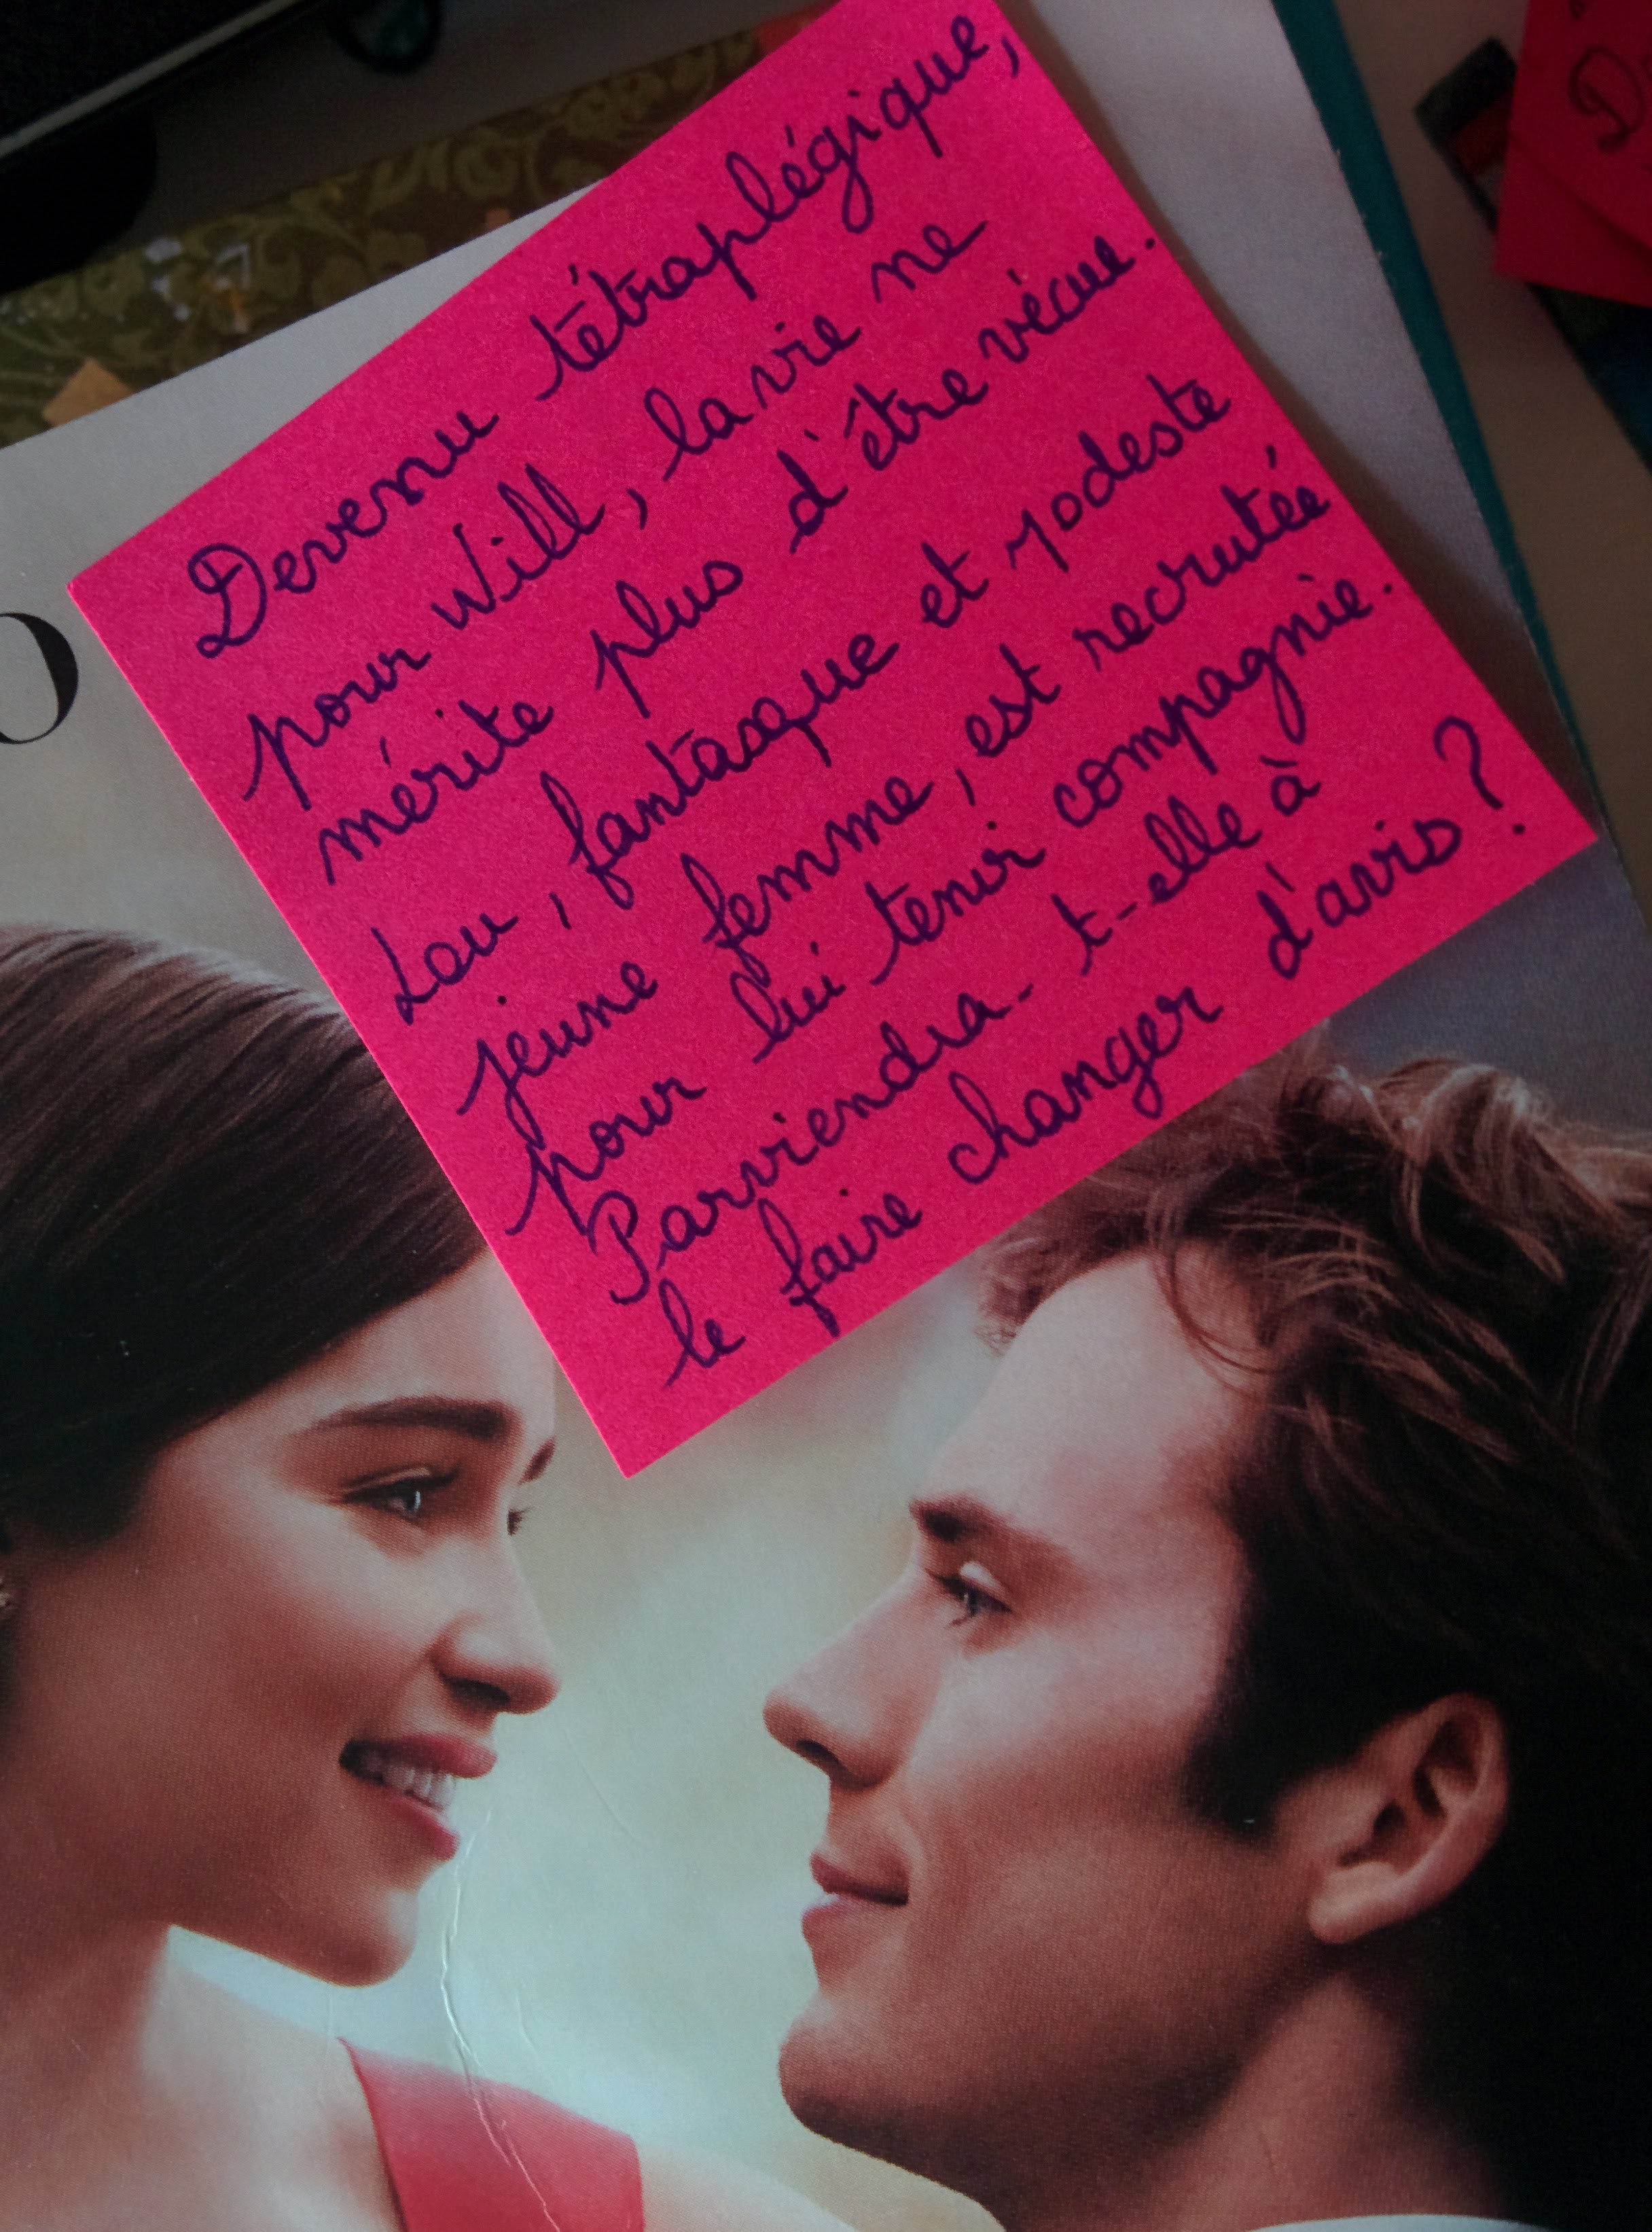 Devenu tétraplégique,
pour Will, la vie ne
mérite plus d'être vécue.
Lou, fantasque et modeste
jeune femme, est recrutée
pour lui tenir compagnie.
Parviendra-t-elle à
le faire changer d'avis ?